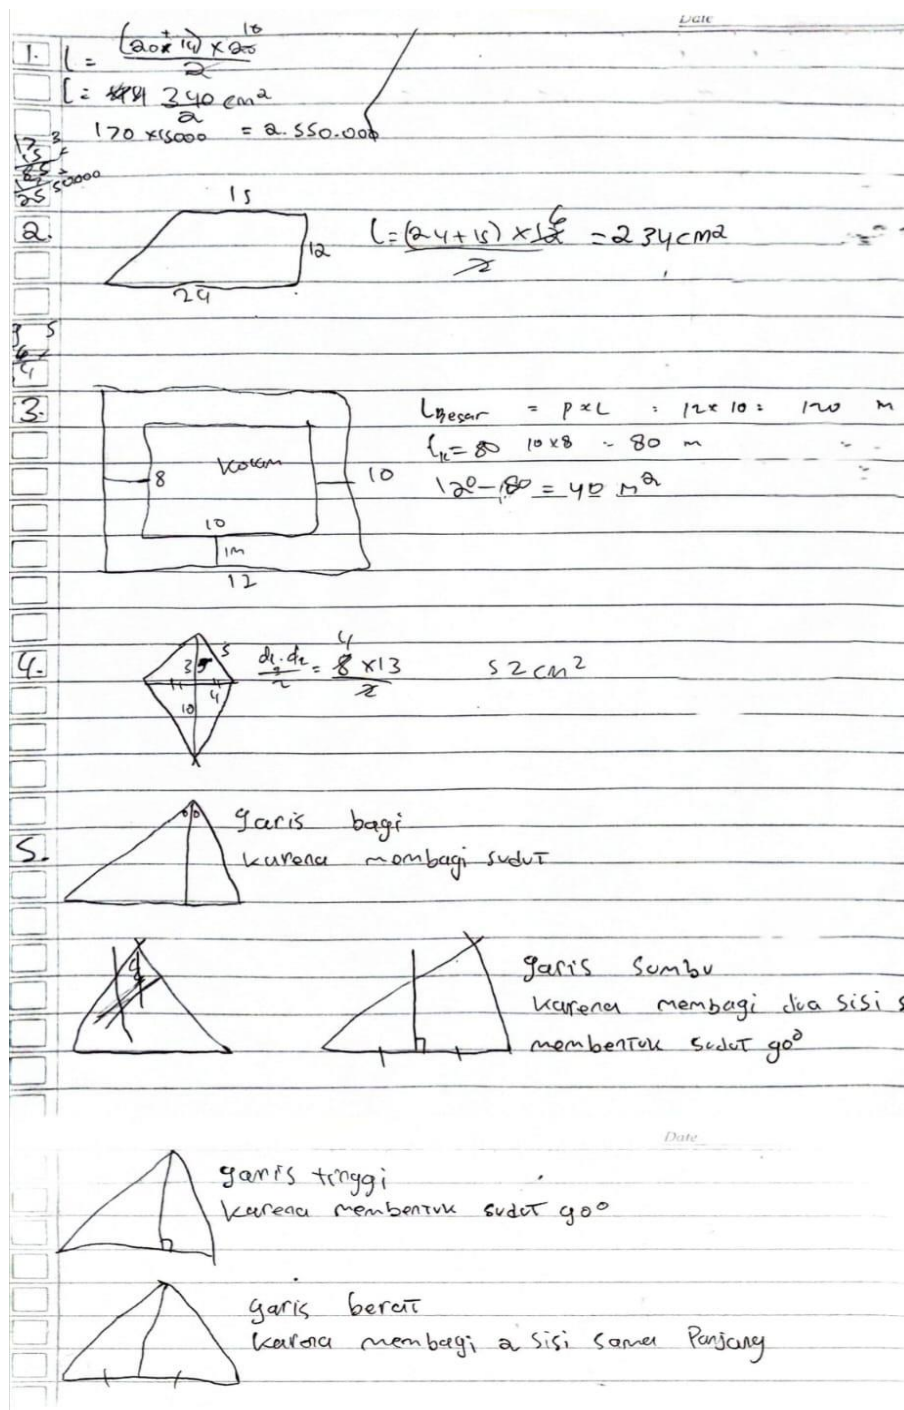 Date
1. L = (20+14) × 20 10
2
L = 340 cm²
2
170 × 15000 = 2.550.000
15
2. 12 L = (24+15) × 12 6 = 234 cm²
2
24
3. L Besar = P × L : 12 × 10 = 120 m
Kolam
8 10
10
1m
12
Lk = 80 10×8 = 80 m
120 - 80 = 40 m²
4. 3 5 4 10
d1.d2 = 8 4 × 13 52 cm²
2 2
5. garis bagi
karena mombagi sudut
garis sumbu
karena membagi dua sisi s
membentuk sudut 90°
Date
garis tinggi
karena membentuk sudut 90°
garis berat
karena membagi 2 sisi sama Panjang